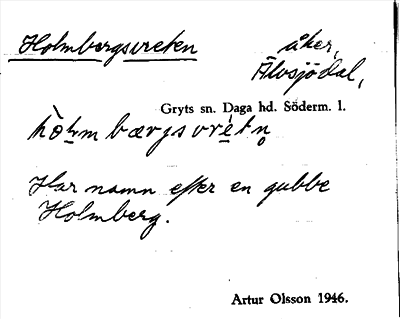 Holmbergsvreten åker,
Älvsjödal,
Gryts sn. Daga hd. Söderm. l.
hòlmbærjsvré̀tn̥
Har namn efter en gubbe
Holmberg.
Artur Olsson 1946.